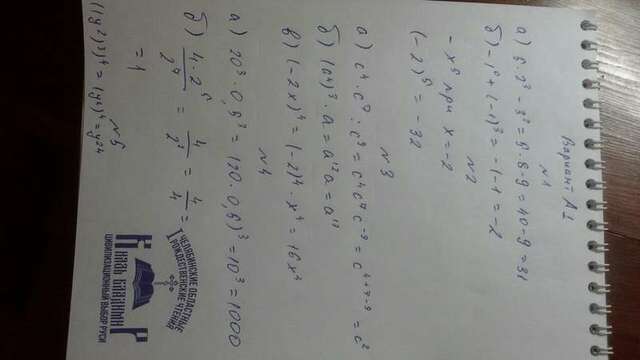 Вариант А1
№1
а) 5·2³ - 3² = 5·8-9 = 40-9 = 31
б) -1⁰ + (-1)³ = -1-1 = -2
№2
-x⁵ при x = -2
(-2)⁵ = -32
№3
а) c⁴·c⁷:c⁹ = c⁴c⁷c⁻⁹ = c⁴⁺⁷⁻⁹ = c²
б) (a⁴)³·a = a¹²a = a¹³
в) (-2x)⁴ = (-2)⁴·x⁴ = 16x⁴
№4
а) 20³·0,5³ = (20·0,5)³ = 10³ = 1000
б) 4·2⁵/2⁷ = 4/2² = 4/4 =
= 1
№5
((y²)³)⁴ = (y⁶)⁴ = y²⁴
ЧЕЛЯБИНСКИЕ ОБЛАСТНЫЕ
РОЖДЕСТВЕНСКИЕ ЧТЕНИЯ
КНЯЗЬ ВЛАДИМИР
ЦИВИЛИЗАЦИОННЫЙ ВЫБОР РУСИ